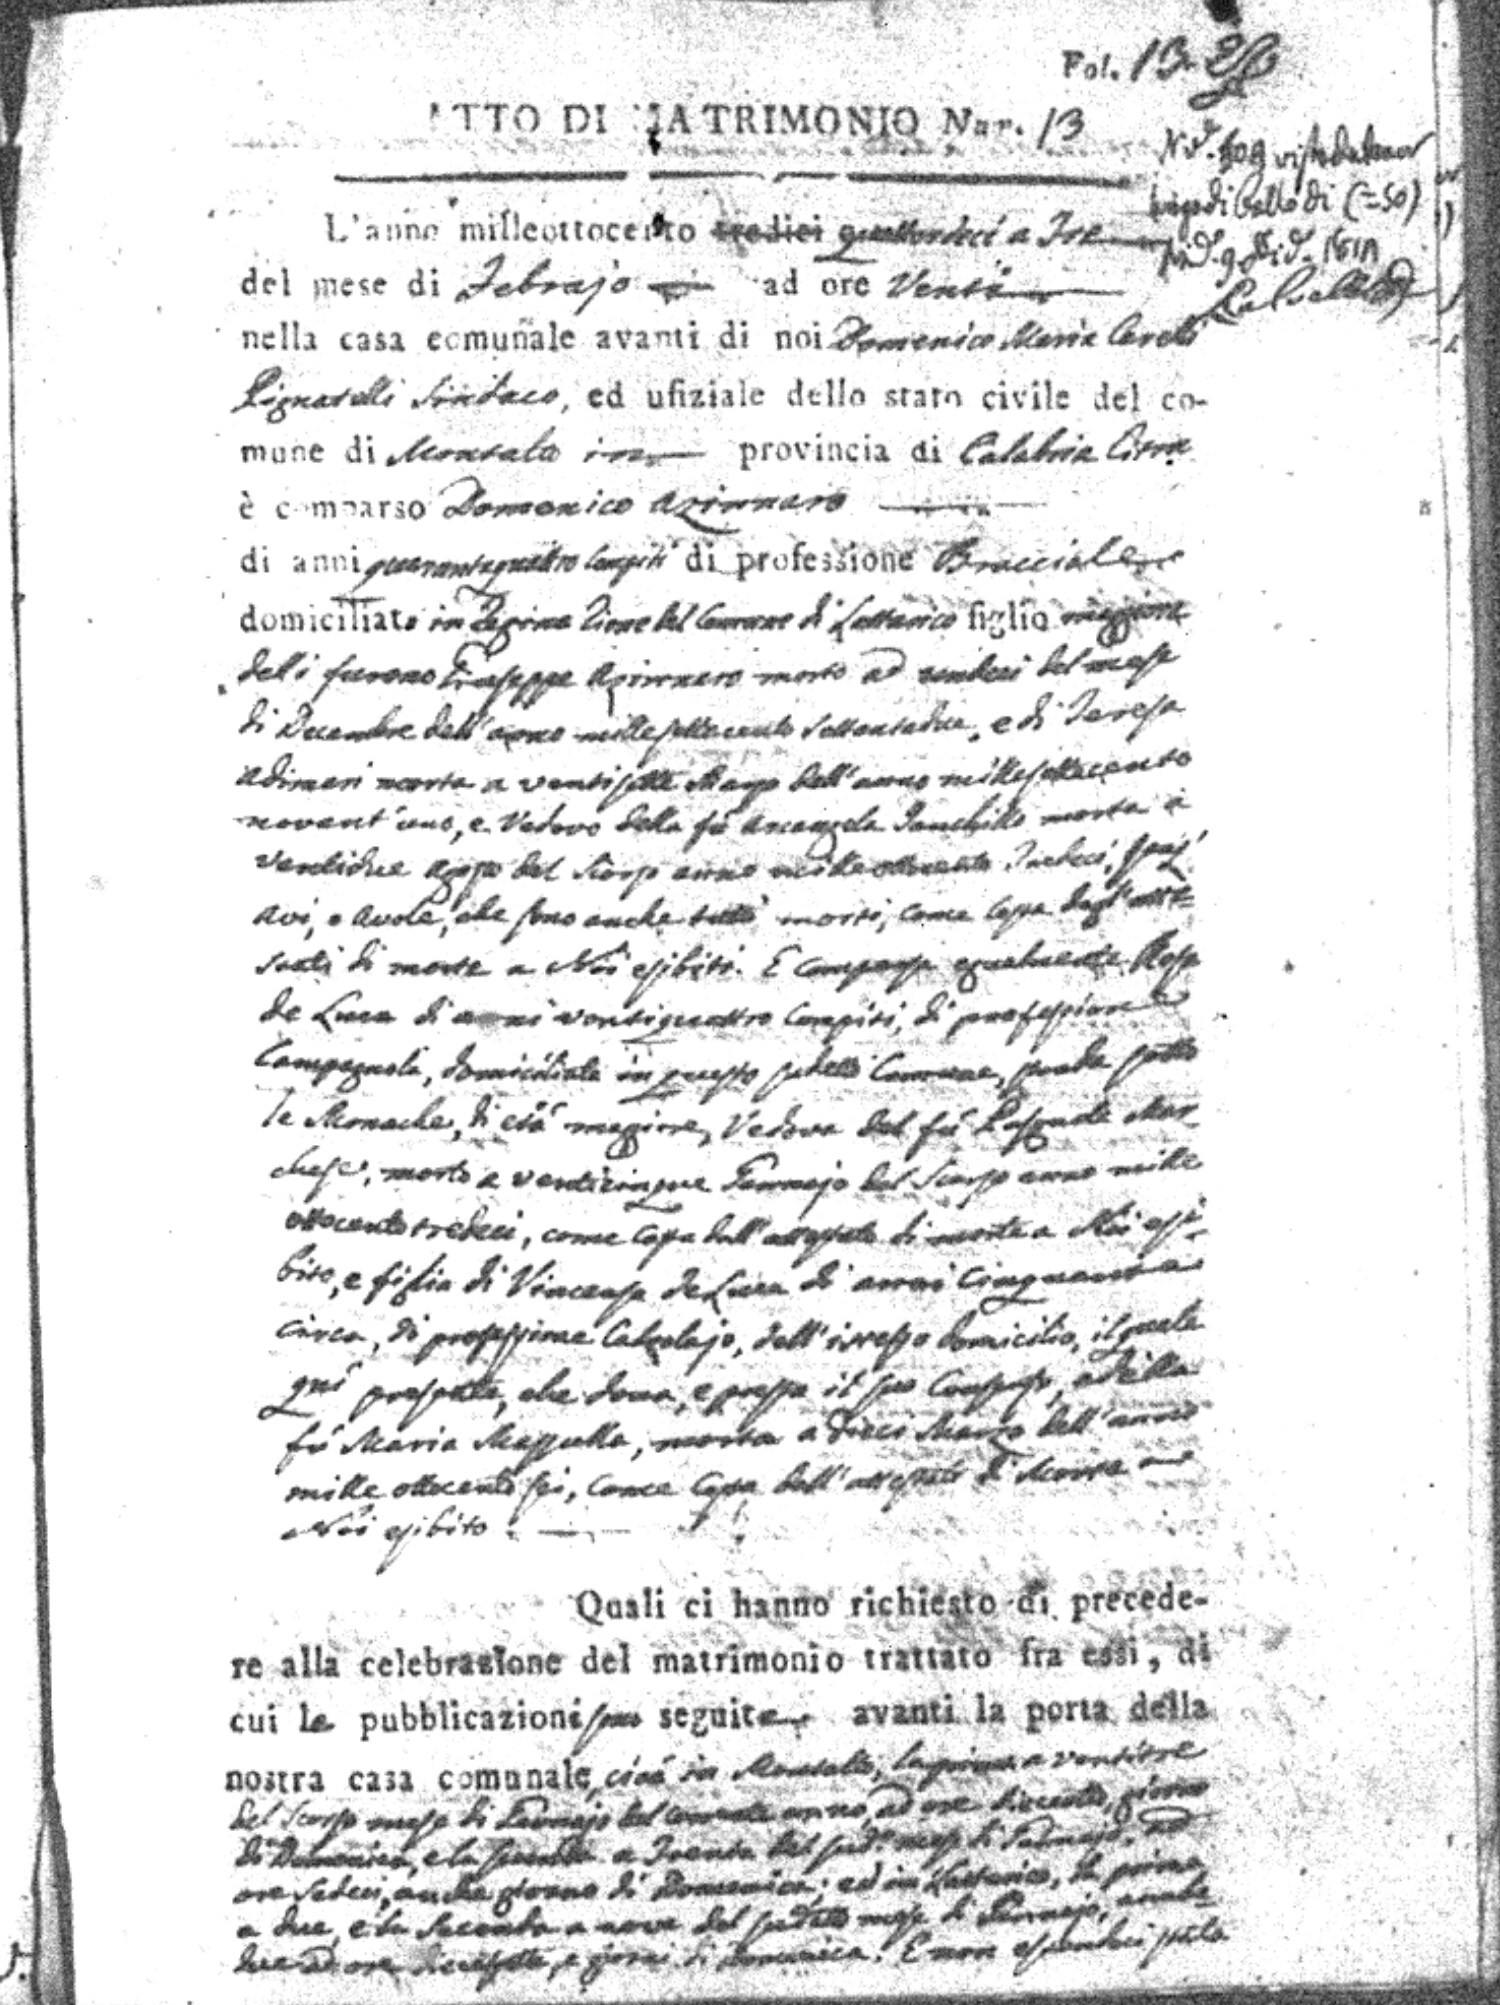 Fol. 13
ATTO DI MATRIMONIO Nur. 13
L'anno milleottocento tredici quattordeci a Tre
del mese di Febrajo ad ore Venti
nella casa comunale avanti di noi Domenico Maria
Pignatelli Sindaco, ed ufiziale dello stato civile del co-
mune di Montalto in provincia di Calabria Citra
è comparso Domenico Azinnaro
di anni quarantaquattro compiti di professione Bracciale
domiciliato in del Comune di Lattarico figlio maggiore
delli furono Giuseppe Azinnaro morto ad undeci del mese
di Decembre dell'anno millesettecento settantadue, e di Teresa
morta a ventisette Marzo dell'anno millesettecento
novant'uno, e Vedovo della fù Arcangela morta a
ventidue del scorso anno milleottocento tredeci,
Avi, e Avole, che sono anche tutti morti, come costa dagl'atte-
stati di morte a Noi esibiti. È comparsa egualmente Rosa
de Luca di anni ventiquattro compiti, di professione
Campagnola, domiciliata in questo sudetto Comune, strada sotto
le Monache, di età maggiore, Vedova del fù Pasquale Mar-
chese, morto a venticinque Gennajo del scorso anno mille
ottocento tredeci, come costa dall'attestato di morte a Noi esi-
bito, e figlia di Vincenzo de Luca di anni Cinquanta
circa, di professione Calzolajo, dell'istesso domicilio, il quale
quì presente, che dona, e presta il suo Consenso, e della
fù Maria Mazzulla, morta a dieci Marzo dell'anno
mille ottocento sei, come costa dall'attestato di Morte a
Noi esibito.
Quali ci hanno richiesto di precede-
re alla celebrazione del matrimonio trattato fra essi, di
cui le pubblicazioni sono seguite avanti la porta della
nostra casa comunale, cioè in Montalto, la prima a ventitre
del scorso mese di Gennajo del corrente anno, ad ore dieciotto, giorno
di Domenica, e la seconda a Trenta del sud.º mese di Gennajo, ad
ore sedeci, anche giorno di Domenica; ed in Lattarico, la prima
a due, e la seconda a nove del sudetto mese di Gennajo, ambe-
due ad ore diecisette, e giorni di Domenica. E non essendoci stata